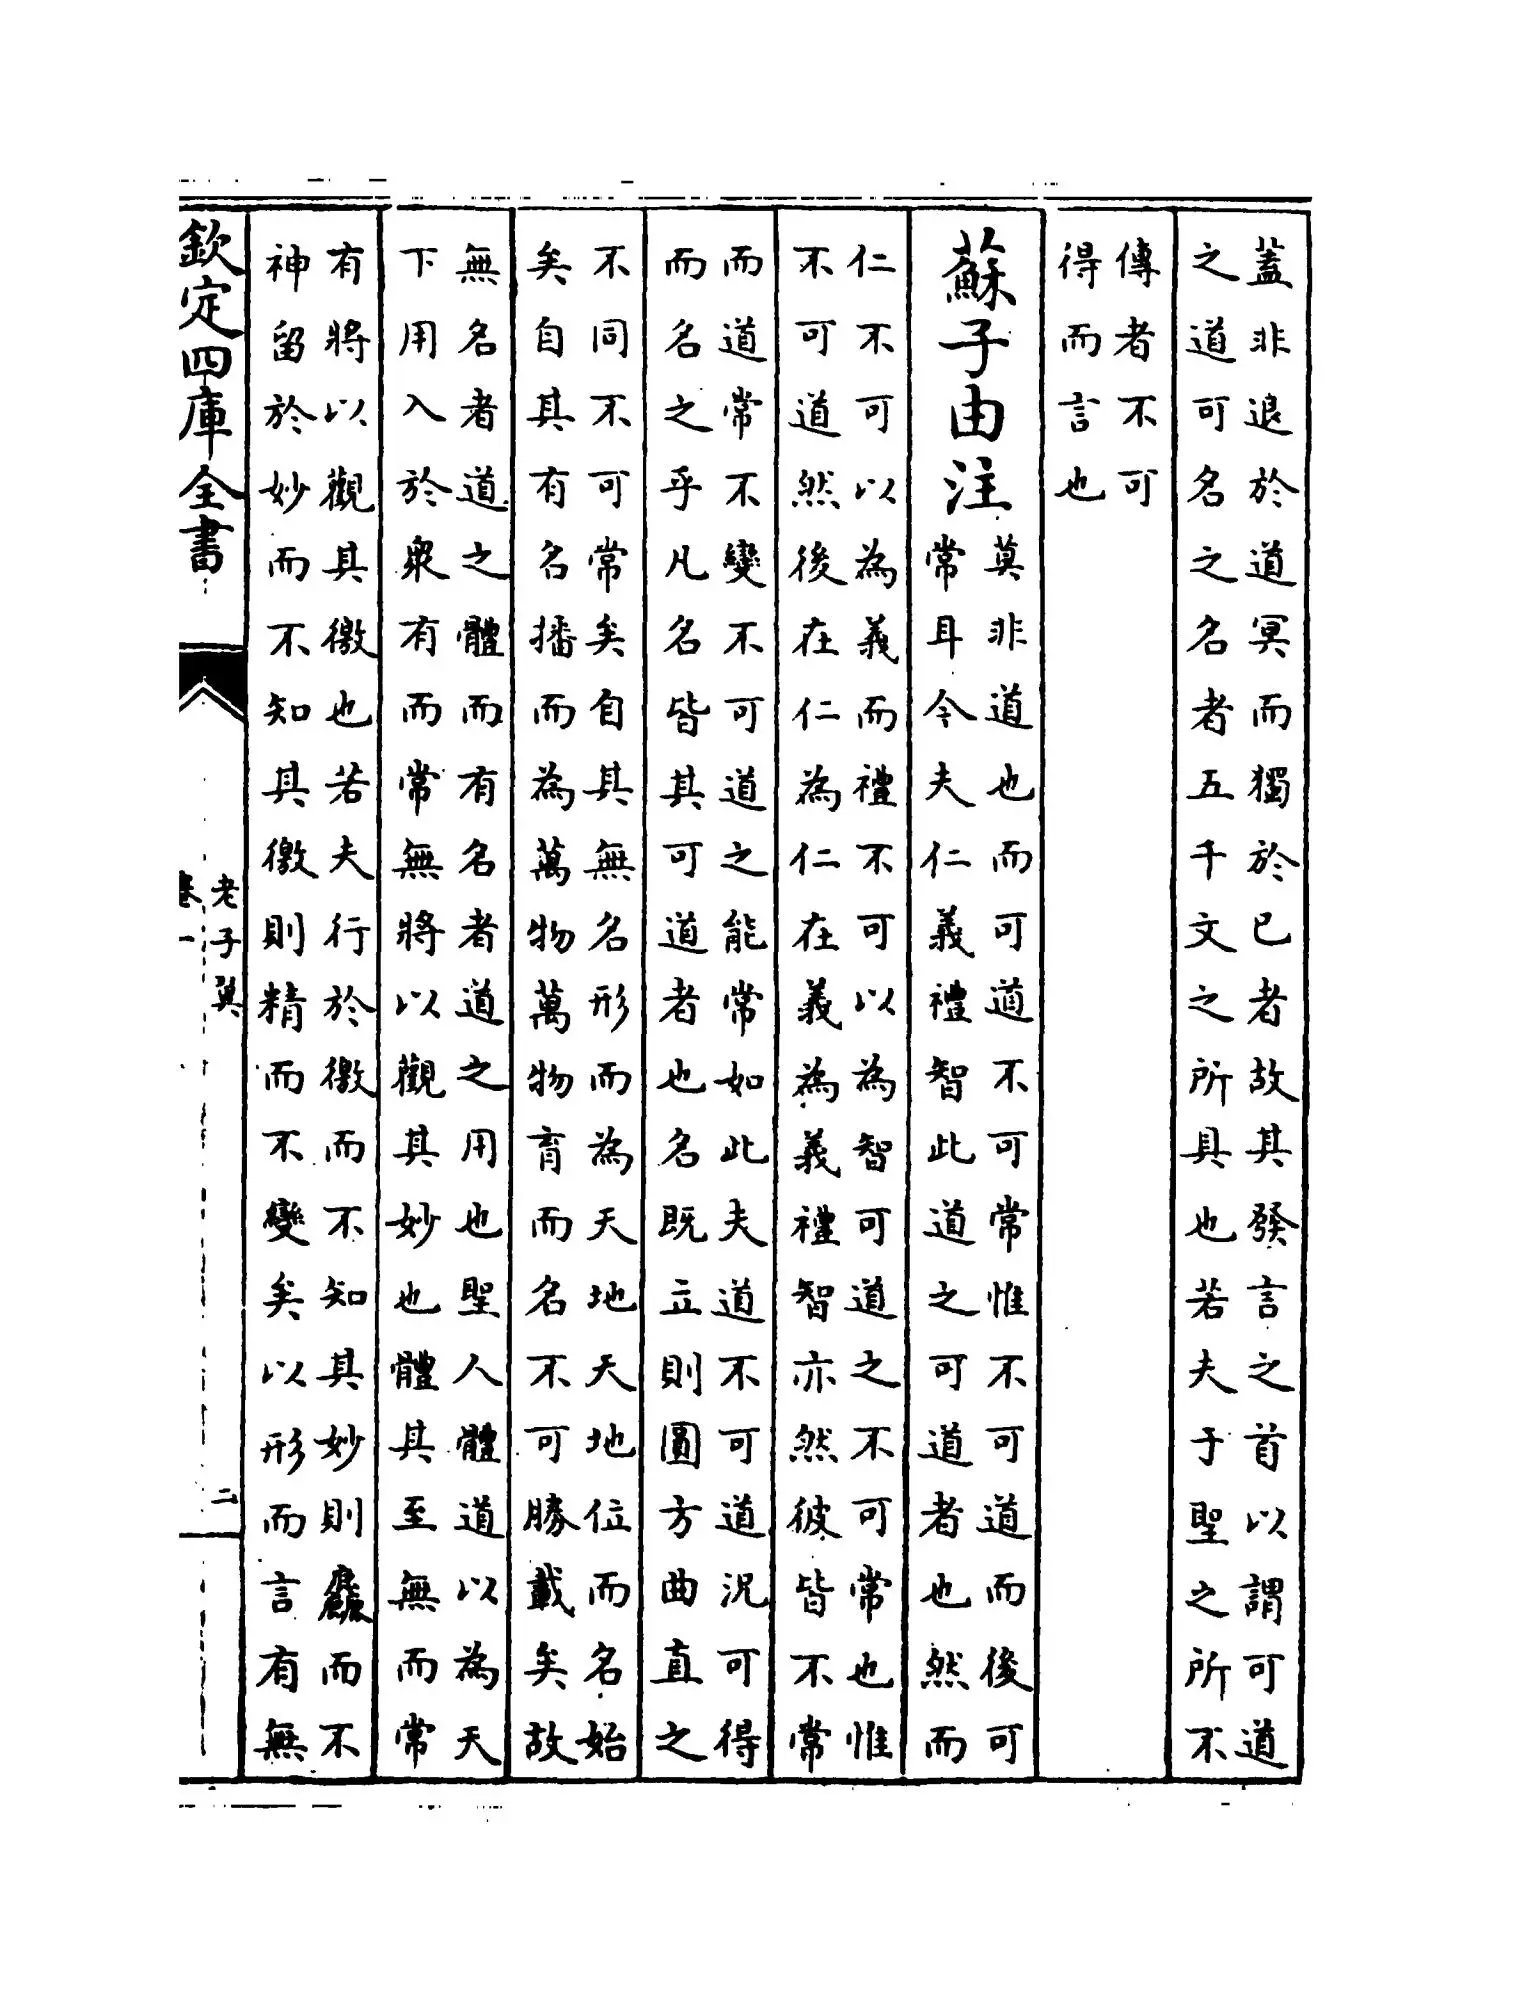 蓋非退於道冥而獨於已者故其發言之首以謂可道
之道可名之名者五千文之所具也若夫于聖之所不
傳者不可
得而言也
蘇子由注
莫非道也而可道不可常惟不可道而後可
常耳今夫仁義禮智此道之可道者也然而
仁不可以為義而禮不可以為智可道之不可常也惟
不可道然後在仁為仁在義為義禮智亦然彼皆不常
而道常不變不可道之能常如此夫道不可道況可得
而名之乎凡名皆其可道者也名既立則圓方曲直之
不同不可常矣自其無名形而為天地天地位而名始
矣自其有名播而為萬物萬物育而名不可勝載矣故
無名者道之體而有名者道之用也聖人體道以為天
下用入於衆有而常無將以觀其妙也體其至無而常
有將以觀其徼也若夫行於徼而不知其妙則麤而不
神留於妙而不知其徼則精而不變矣以形而言有無
欽定四庫全書
老子翼
卷一
二